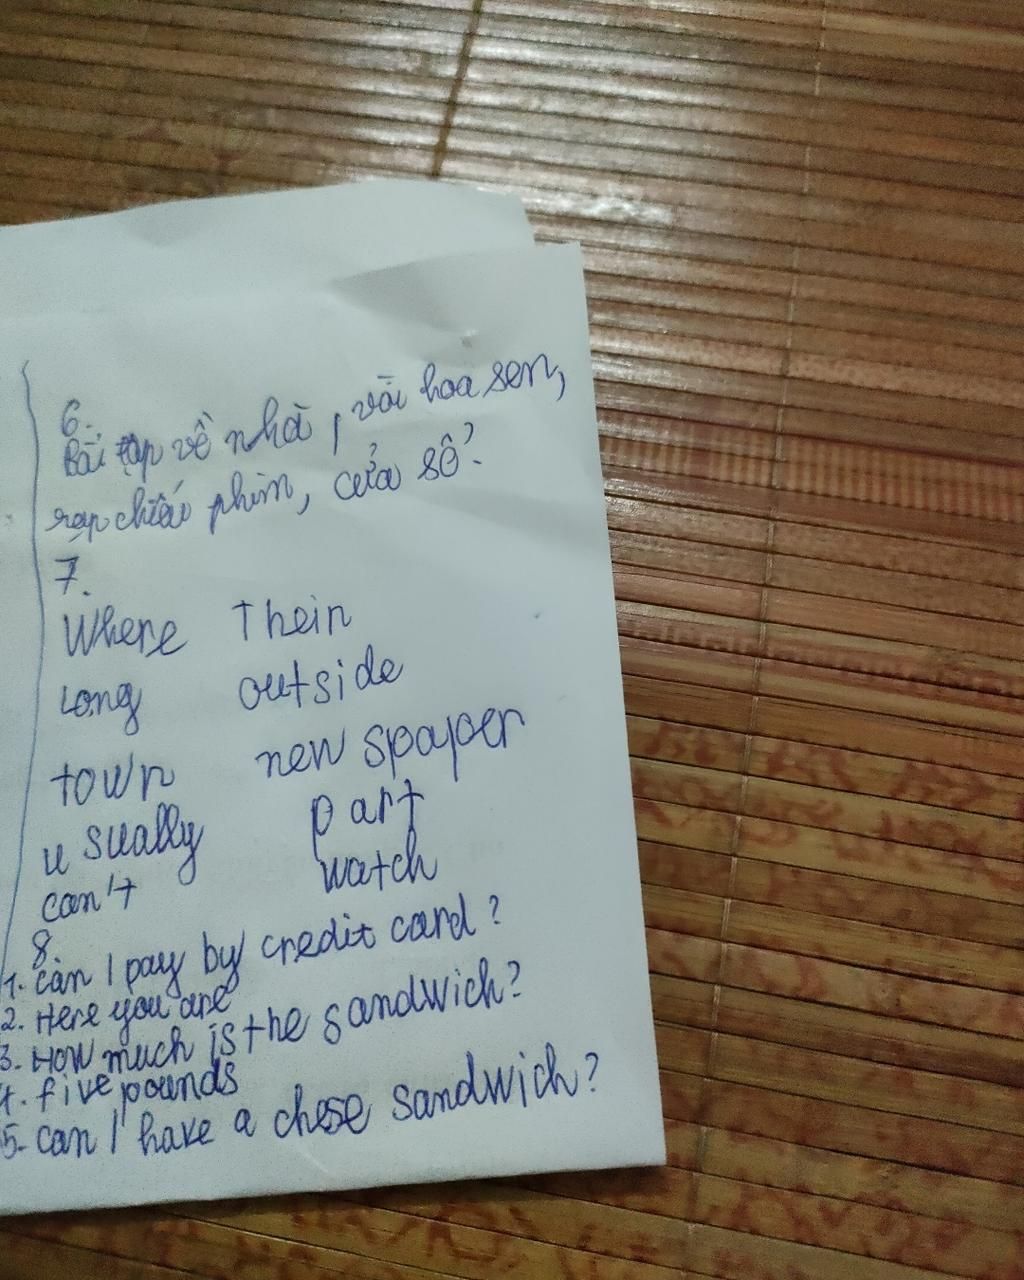 6.
Bài tập về nhà, vòi hoa sen,
rạp chiếu phim, cửa sổ.
7.
Where Their
Long outside
town new spaper
usually part
can't watch
8.
1. Can I pay by credit card?
2. Here you are
3. How much is the sandwich?
4. five pounds
5. Can I have a chese sandwich?